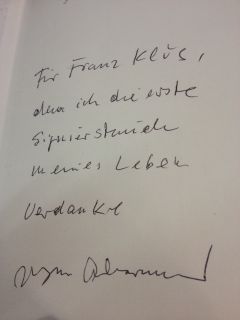 Für Franz Klüs,
dem ich die erste
Signierstunde
meines Leben
verdanke